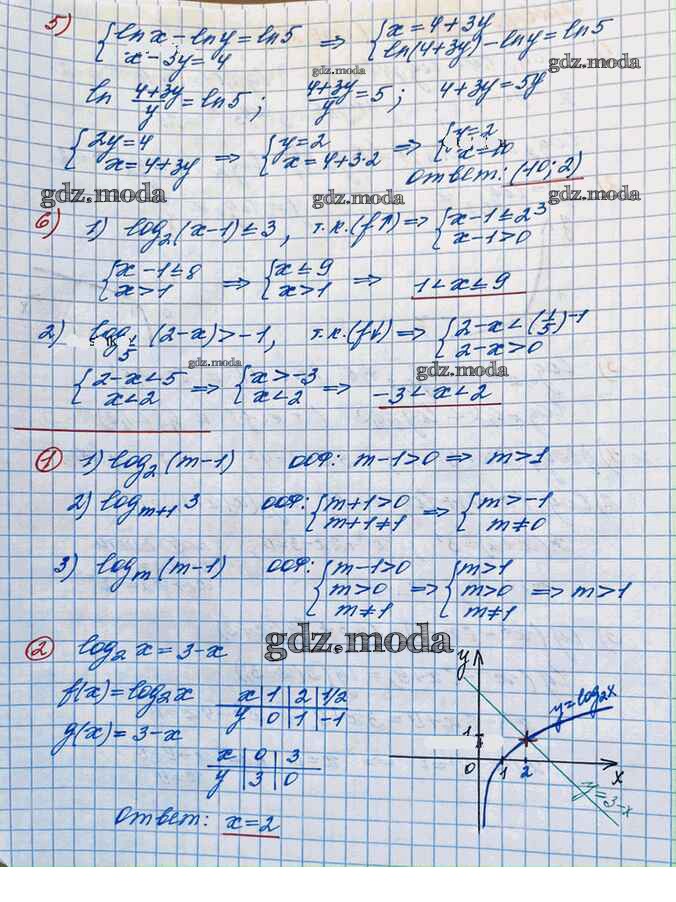 5) { ln x - ln y = ln 5 ⇒ { x = 4 + 3y
x - 3y = 4 ln(4+3y) - ln y = ln 5
gdz.moda gdz.moda
ln (4+3y)/y = ln 5 ; (4+3y)/y = 5 ; 4+3y = 5y
{ 2y = 4 ⇒ { y = 2 ⇒ { y = 2
x = 4+3y x = 4+3·2 x = 10
Ответ: (10; 2)
gdz.moda gdz.moda gdz.moda
6) 1) log₂(x-1) ≤ 3, т.к. (f↑) ⇒ { x-1 ≤ 2³
x-1 > 0
{ x-1 ≤ 8 ⇒ { x ≤ 9 ⇒ 1 < x ≤ 9
x > 1 x > 1
2) log 1/5 (2-x) > -1, т.к. (f↓) ⇒ { 2-x < (1/5)⁻¹
2-x > 0
gdz.moda gdz.moda
{ 2-x < 5 ⇒ { x > -3 ⇒ -3 < x < 2
x < 2 x < 2
1 1) log₂(m-1) ООФ: m-1 > 0 ⇒ m > 1
2) log m+1 3 ООФ: { m+1 > 0 ⇒ { m > -1
m+1 ≠ 1 m ≠ 0
3) log m (m-1) ООФ: { m-1 > 0 ⇒ { m > 1 ⇒ m > 1
m > 0 m > 0
m ≠ 1 m ≠ 1
2 log₂ x = 3-x
gdz.moda
f(x) = log₂x x | 1 | 2 | 1/2
y | 0 | 1 | -1
g(x) = 3-x
x | 0 | 3
y | 3 | 0
Ответ: x = 2
y
y = log₂x
1
0 1 2 x
y = 3-x